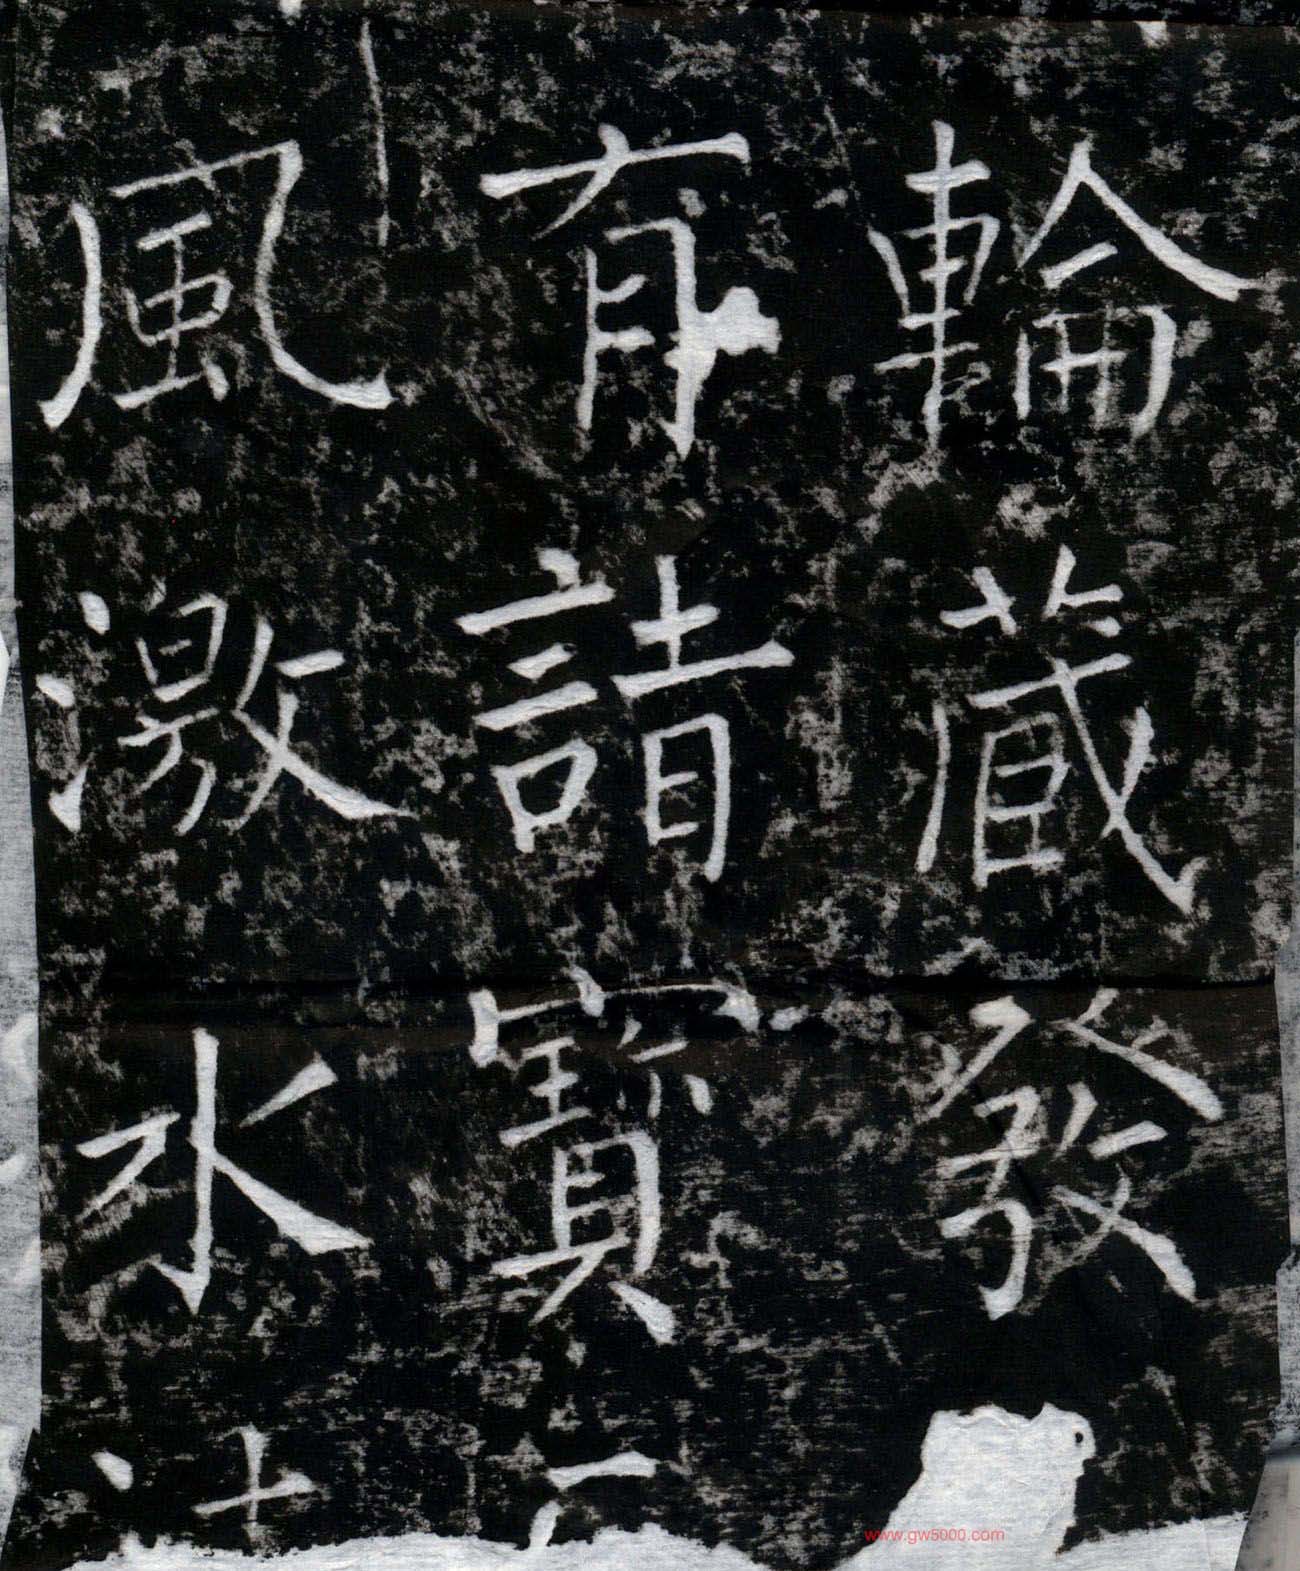 輪藏發
有請寶
風激水
www.gw5000.com